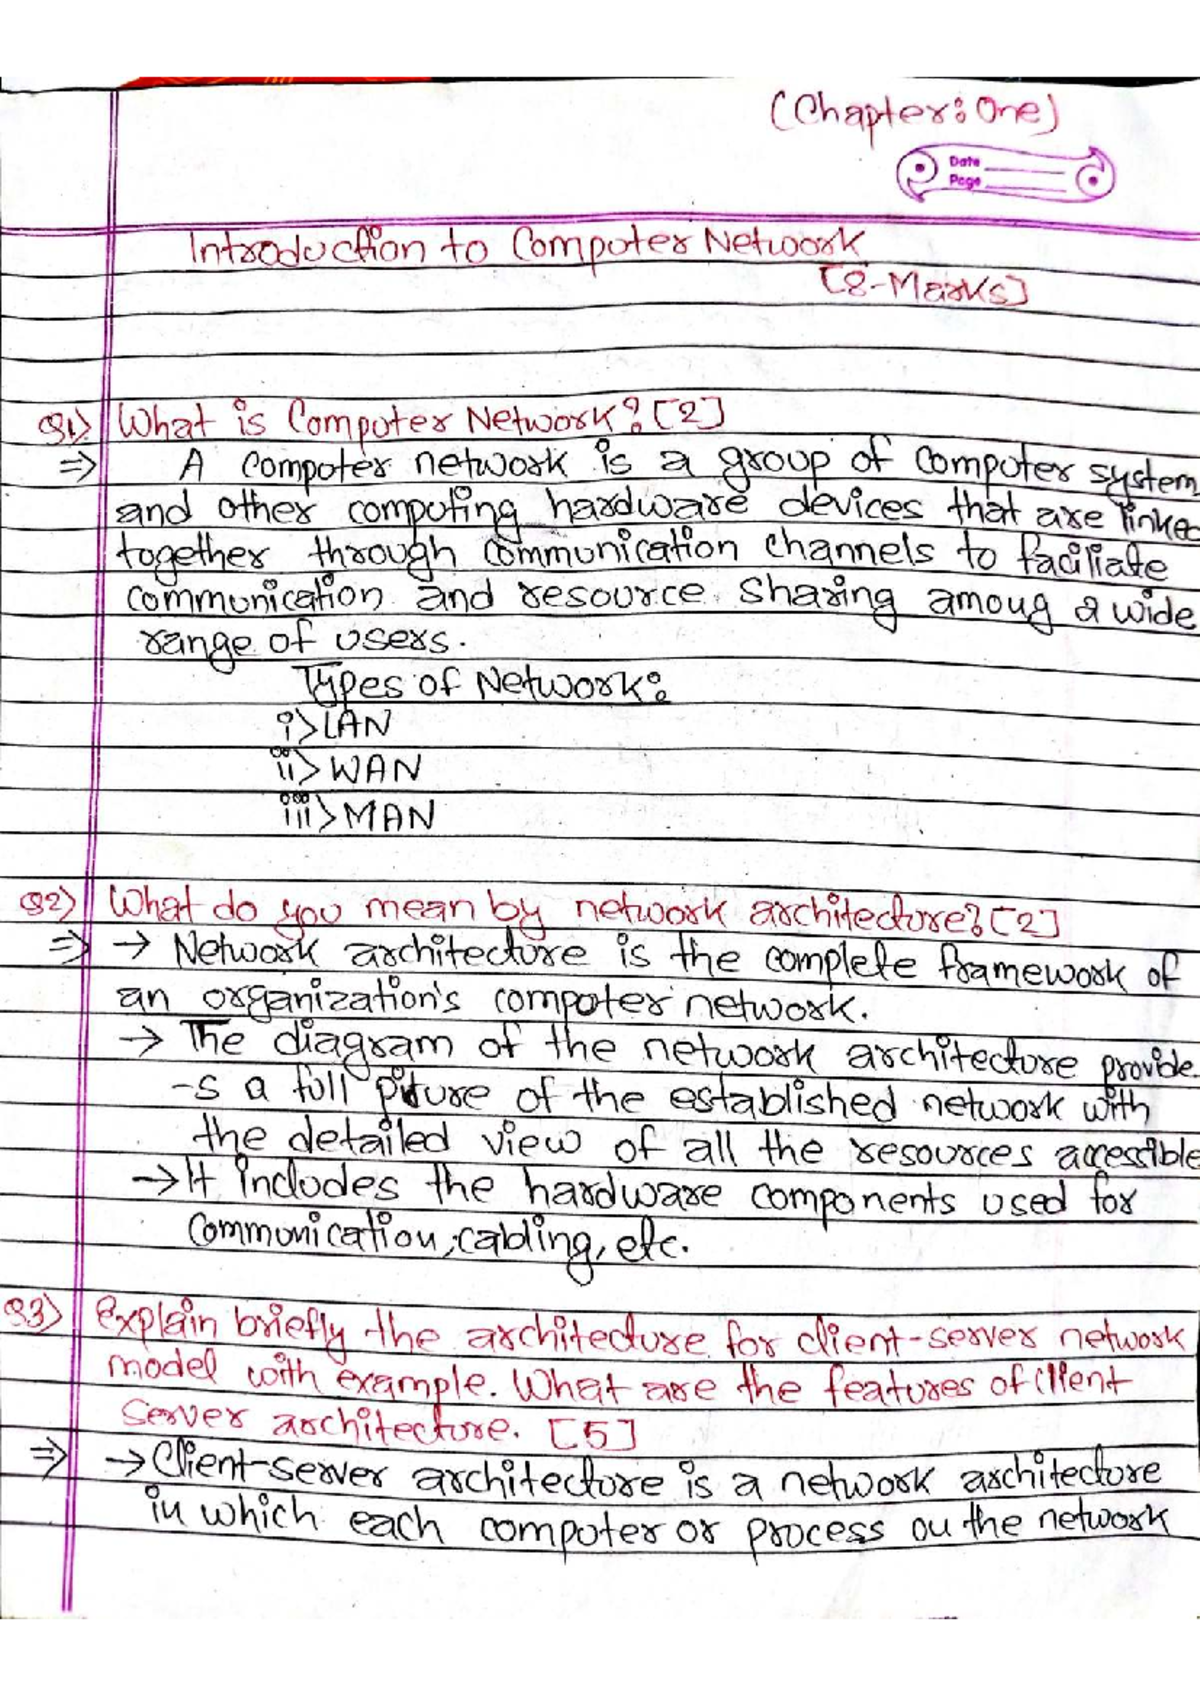 (Chapter: One)
Date
Page
Introduction to Computer Network
[8-Marks]
Q1> What is Computer Network? [2]
⇒ A computer network is a group of computer system
and other computing hardware devices that are linked
together through communication channels to faciliate
communication and resource sharing amoug a wide
range of users.
Types of Network:
i> LAN
ii> WAN
iii> MAN
Q2) What do you mean by network architecture? [2]
⇒ → Network architecture is the complete framework of
an organization's computer network.
→ The diagram of the network architecture provide
-s a full piture of the established network with
the detailed view of all the resources accessible
→ It includes the hardware components used for
communication, cabling, etc.
Q3) Explain briefly the architecture for client-server network
model with example. What are the features of client
server architecture. [5]
⇒ → Client-server architecture is a network architecture
in which each computer or process ou the network